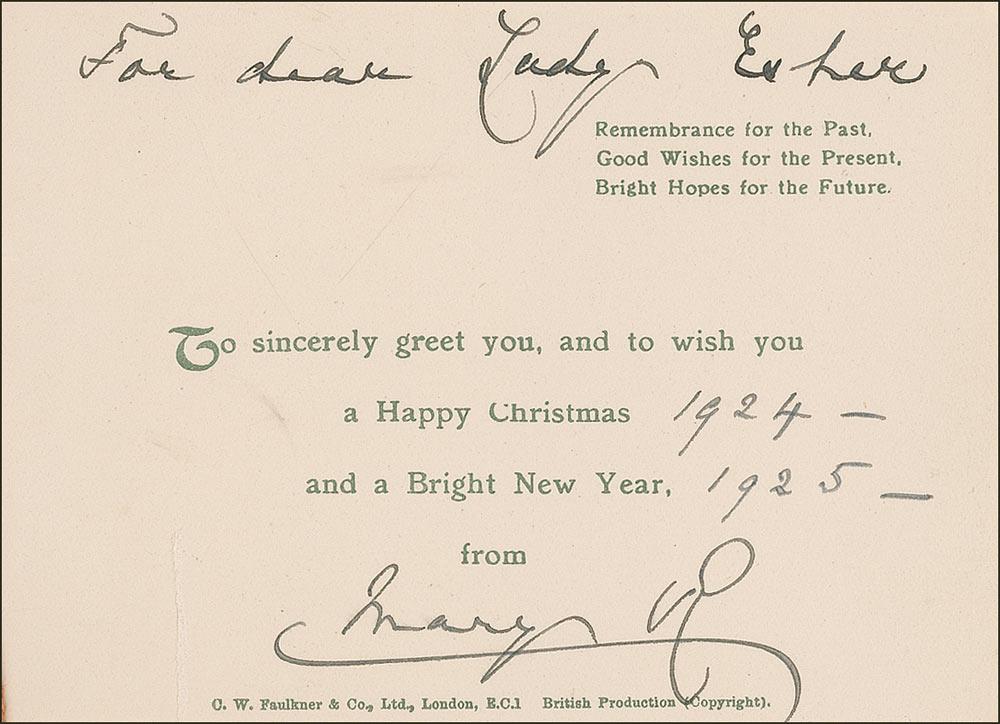 For dear Lady Esher
Remembrance for the Past,
Good Wishes for the Present,
Bright Hopes for the Future.
To sincerely greet you, and to wish you
a Happy Christmas 1924 —
and a Bright New Year, 1925 —
from
Mary R
C. W. Faulkner & Co., Ltd., London, E.C.1 British Production (Copyright).